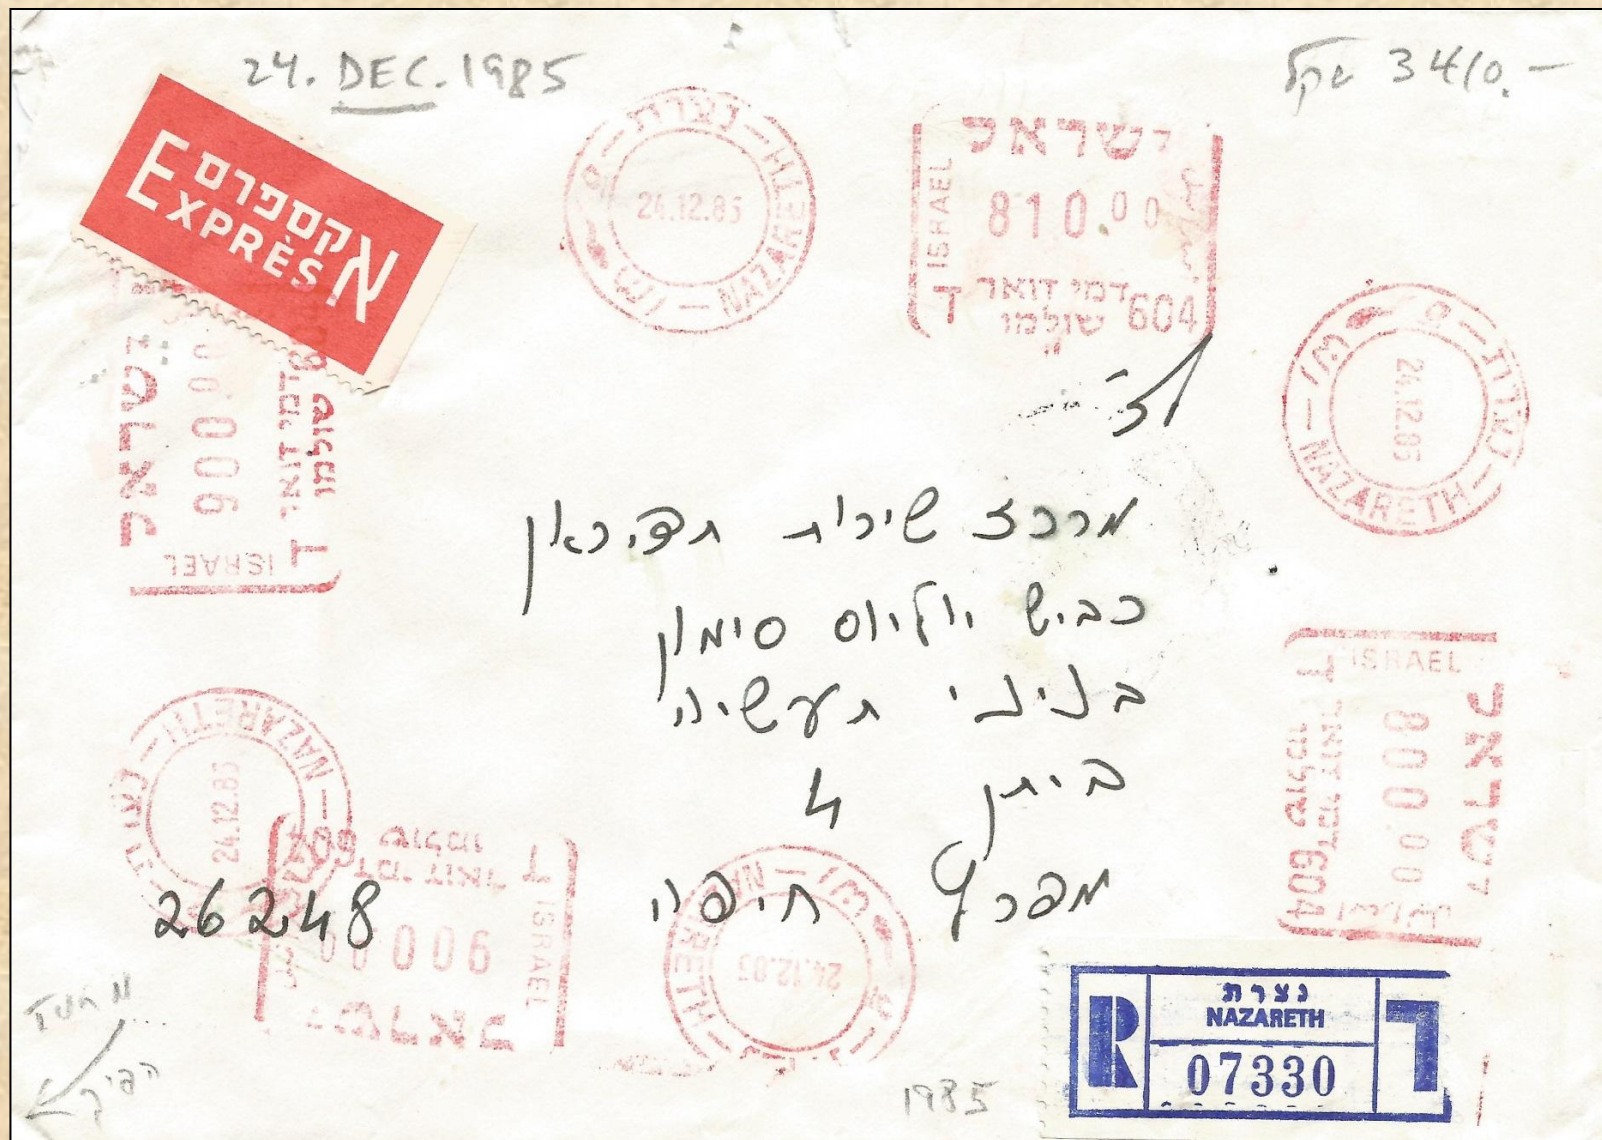 24. DEC. 1985
שקל 3410.-
אקספרס
EXPRÈS
נצרת – NAZARETH
24.12.85
ישראל
ISRAEL
810.00
דמי דואר
שולמו
ד 604
נצרת – NAZARETH
24.12.85
ישראל
900.00
דמי דואר
שולמו
ד
ISRAEL
מרכז שירות תדיראן
כביש יוליוס סימון
בניני תעשיה
ביתן 4
מפרץ חיפה
26248
ISRAEL
800.00
דמי דואר
שולמו
ד 604
נצרת – NAZARETH
24.12.85
ISRAEL
900.00
דמי דואר
שולמו
ד
ישראל
NAZARETH
24.12.85
1985
R
נצרת
NAZARETH
07330
ר